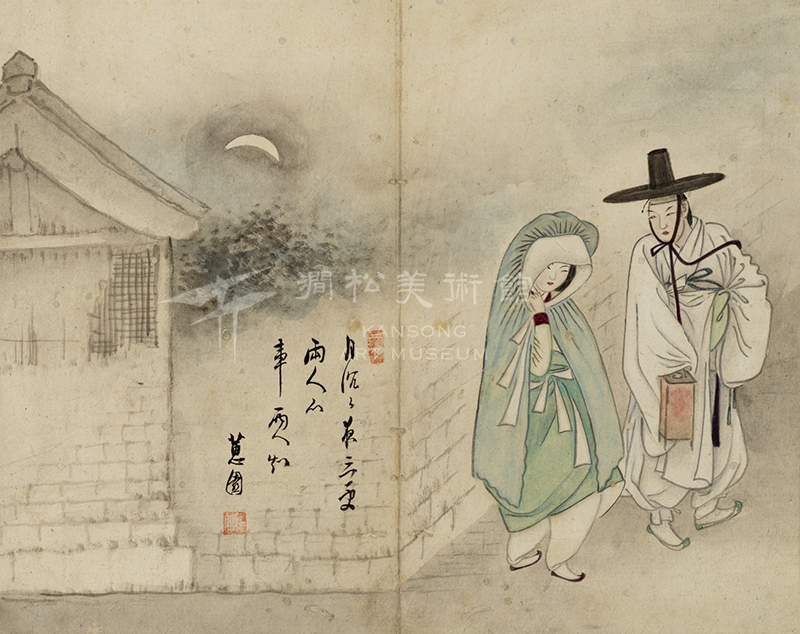 月沉〻夜三更
兩人心
事兩人知
蕙園
澗松美術館
KANSONG
ART MUSEUM